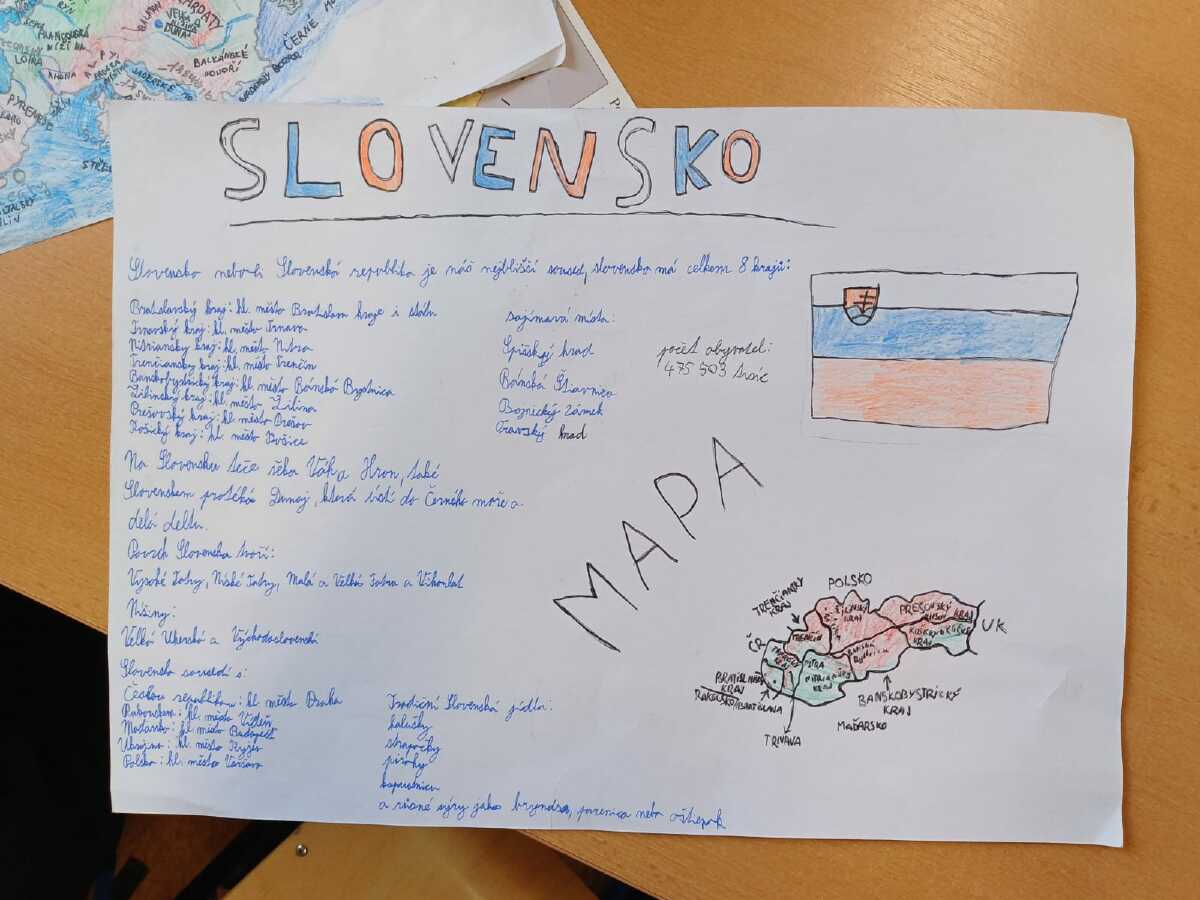 SLOVENSKO
Slovensko neboli Slovenská republika je náš nejbližší soused, slovensko má celkem 8 krajů:
Bratislavský kraj: hl. město Bratislava kraje i státu
Trnavský kraj: hl. město Trnava
Nitrianský kraj: hl. město Nitra
Trenčianský kraj: hl. město Trenčín
Banskobystrický kraj: hl. město Bánská Bystrica
Žilinský kraj: hl. město Žilina
Prešovský kraj: hl. město Prešov
Košický kraj: hl. město Košice
zajímavá místa:
Spišský hrad
Bánská Štiavnica
Bojnický zámek
Oravský hrad
počet obyvatel:
475 503 tisíc
Na Slovensku teče řeka Váh a Hron, také
Slovenskem protéká Dunaj, která ústí do Černého moře a
dělá deltu.
Povrch Slovenska tvoří:
Vysoké Tatry, Nízké Tatry, Malá a Velká Fatra a Vihorlat
Nížiny:
Velká a Východoslovenská
Slovensko sousedí s:
Českou republikou: hl. město Praha
Rakouskem: hl. město Vídeň
Maďarsko: hl. město Budapešť
Ukrajina: hl. město Kyjev
Polsko: hl. město Varšava
Tradiční Slovenská jídla:
halušky
strapačky
pirohy
kapustnica
a různé sýry jako bryndza, parenica nebo oštiepok
MAPA
POLSKO
TRENČIANSKY
KRAJ
ŽILINSKÝ
KRAJ
PREŠOVSKÝ KRAJ
PREŠOV
KOŠICE KOŠICKÝ
KRAJ
UK
ČR
TRENČÍN
BANSKÁ
BYSTRICA
NITRA
NITRIANSKÝ
KRAJ
BRATISLAVSKÝ
KRAJ
RAKOUSKO
BRATISLAVA
BANSKOBYSTRICKÝ
KRAJ
MAĎARSKO
TRNAVA
KARPATY
VELKÁ
DUNAJ
BALKÁN
ČERNÉ
BALKÁNSKÉ
POHOŘÍ
FRANCOUZSKÁ
NÍŽINA
LOIRA
RHÔNA
ALPY
PYRENEJE
STŘE